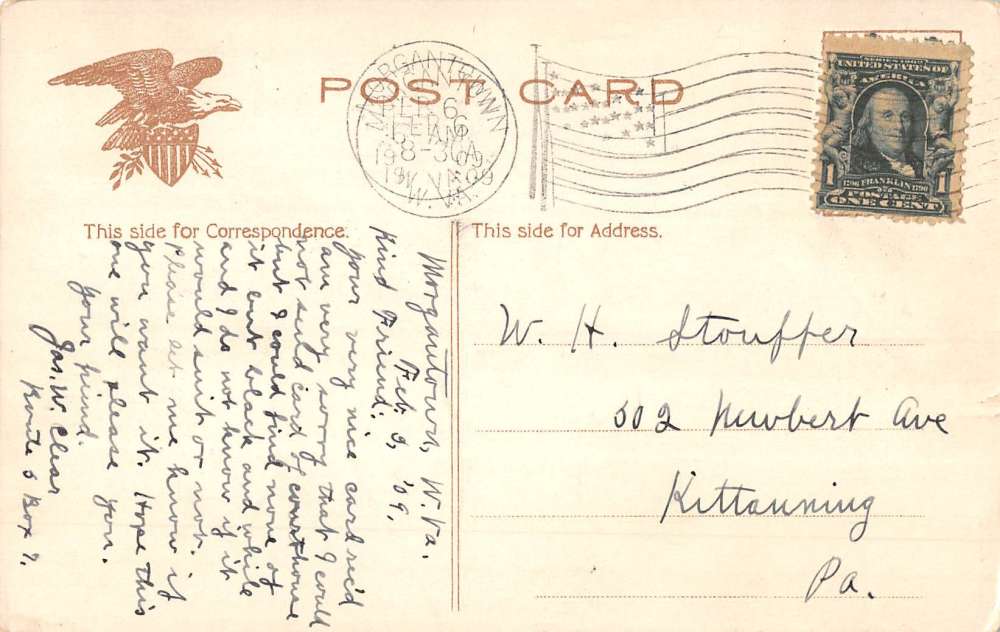 POST CARD
MORGANTOWN
FEB 6
8-30A
1909
W. VA.
SERIES 1902
UNITED STATES OF
AMERICA
1 1
1706 FRANKLIN 1790
POSTAGE
ONE CENT
This side for Correspondence.
This side for Address.
Morgantown, W. Va.
Feb 2, '09,
Kind Friend:
your very nice card rec'd
am very sorry that I could
not send card of courthouse
but I could find none of
it but black and while
and I do not know if it
would suit or not.
please let me know if
you want it. Hope this
one will please you.
your friend.
Jas. W. Clear
Route 5 Box 7.
W. H. Stouffer
502 Newbert Ave
Kittanning
Pa.